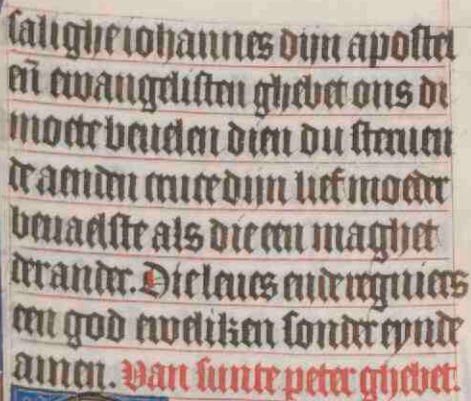 salighe iohannes dijn apostel
en̄ ewangelisten ghebet ons di
moete beuelen dien du steruen
de aenden cruce dijn lief moeder
beuaelste als die een maghet
der ander. Die leues ende regniers
een god eweliken sonder eynde
amen. Van sunte peter ghebet.